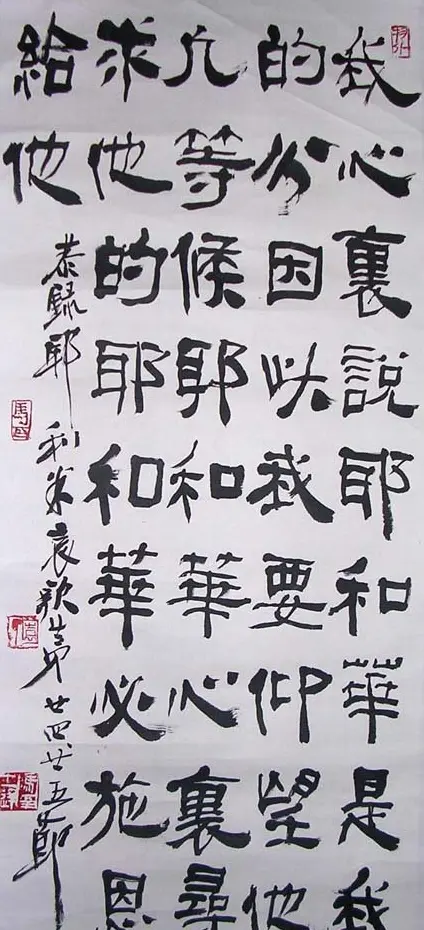 我心裏說耶和華是我
的分因此我要仰望他
凡等候耶和華心裏尋
求他的耶和華必施恩
給他
恭錄耶利米哀歌第廿四廿五節